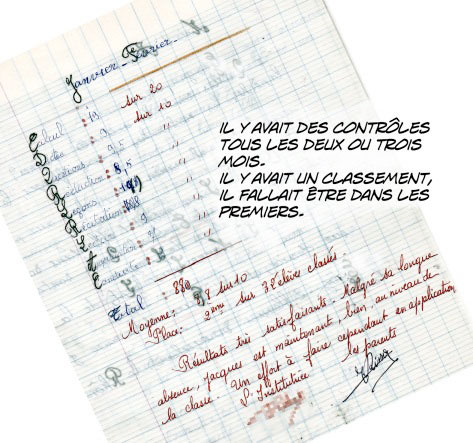 Janvier - Février
Calcul : 19 sur 20
Dictée : 9 sur 10
Questions : 9,5 "
Rédaction : 8,5 "
Leçons : "
Récitation : "
Lecture : "
: 9 "
Conduite : "
Total :
Moyenne : sur 10
Place : 2ème sur 32 élèves classés
Résultats très satisfaisants. Malgré sa longue
absence, Jacques est maintenant bien au niveau de
la classe. Un effort à faire cependant en application
L'Institutrice les parents
IL Y AVAIT DES CONTRÔLES
TOUS LES DEUX OU TROIS
MOIS.
IL Y AVAIT UN CLASSEMENT,
IL FALLAIT ÊTRE DANS LES
PREMIERS.